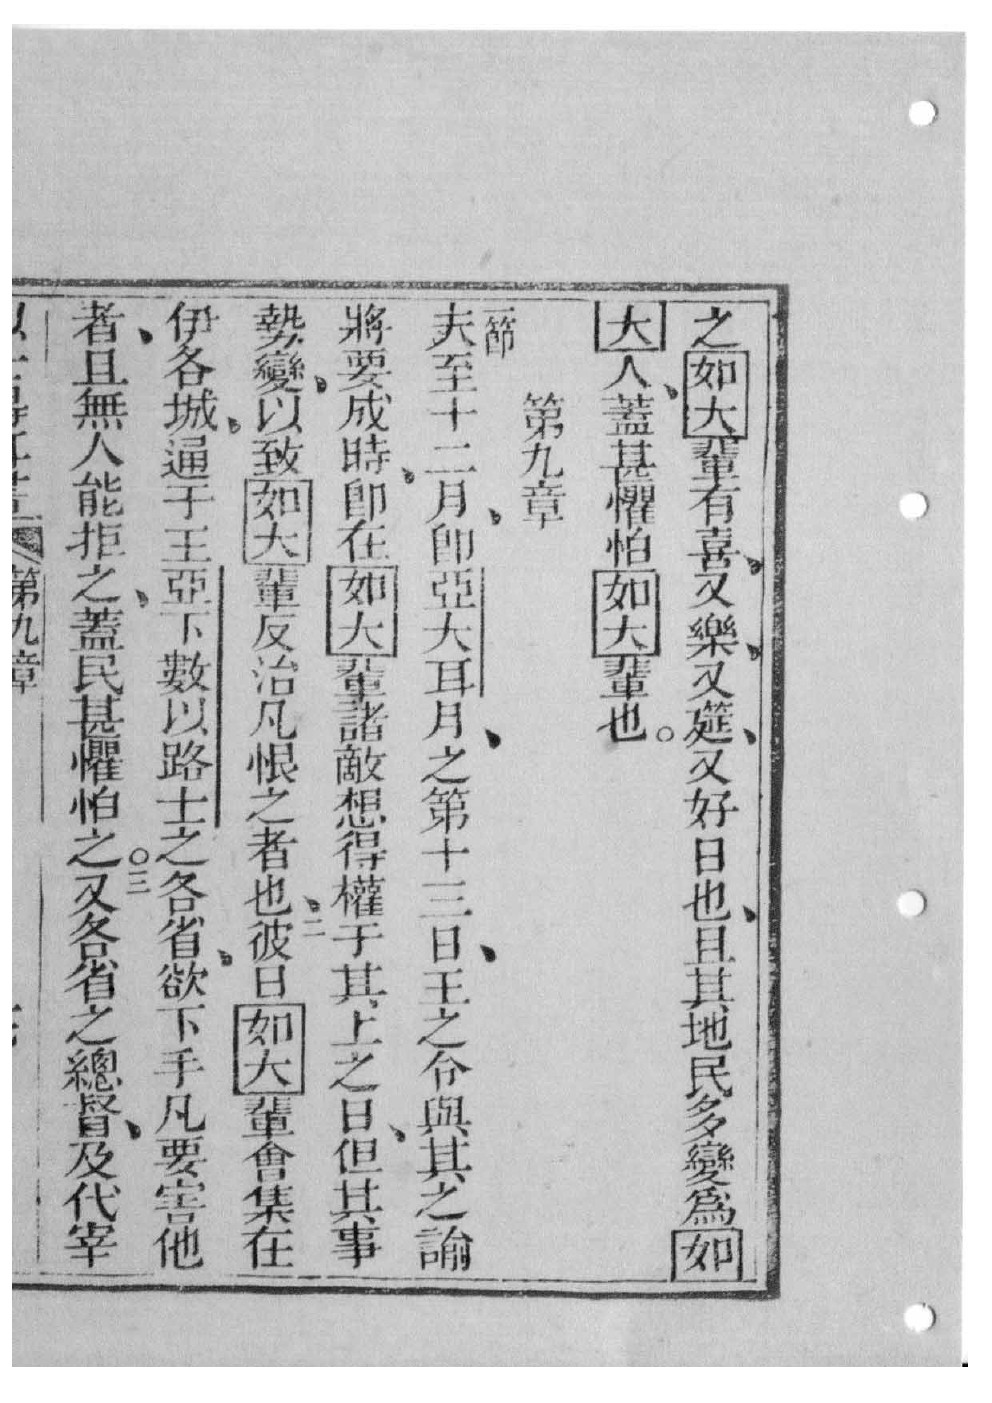 之如大輩有喜、又樂、又筵、又好日也、且其地民多變爲如
大人、蓋甚懼怕如大輩也。
第九章
一節夫至十二月、卽亞大耳月、之第十三日、王之令與其之諭
將要成時、卽在如大輩諸敵想得權于其上之日、但其事
勢變、以致如大輩反治凡恨之者也、二彼日如大輩會集在
伊各城、通于王亞下數以路士之各省、欲下手凡要害他
者、且無人能拒之、蓋民甚懼怕之。三又各省之總督、及代宰
第九章